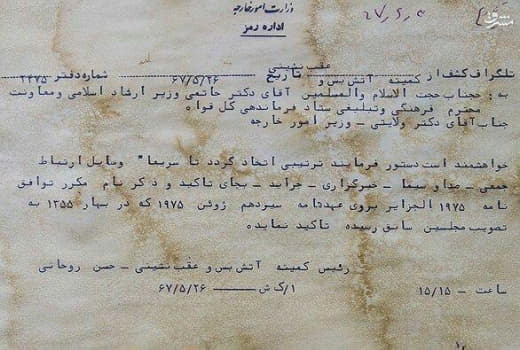 وزارت امور خارجه
اداره رمز
۲۷٫۶٫۳
مشرق
عقب نشینی
تلگراف کشف از کمیته آتش بس و تاریخ ۶۷/۵/۲۶ شماره دفتر ۲۴۷۵
به : جناب حجت الاسلام والمسلمین آقای دکتر خاتمی وزیر ارشاد اسلامی و معاونت
محترم فرهنگی و تبلیغی ستاد فرماندهی کل قوا
جناب آقای دکتر ولایتی ـ وزیر امور خارجه
خواهشمند است دستور فرمایند ترتیبی اتخاذ گردد تا سریعا" وسایل ارتباط
جمعی ـ صدا و سیما ـ خبرگزاری ـ جراید ـ بجای تاکید و ذکر نام مکرر توافق
نامه ۱۹۷۵ الجزایر بروی عهدنامه سیزدهم ژوئن ۱۹۷۵ که در بهار ۱۳۵۵ به
تصویب مجلسین سابق رسیده تاکید نمایند
رئیس کمیته آتش بس و عقب نشینی ـ حسن روحانی
ساعت ـ ۱۵/۱۵ ۱/ک ش ــــ ۶۷/۵/۲۶